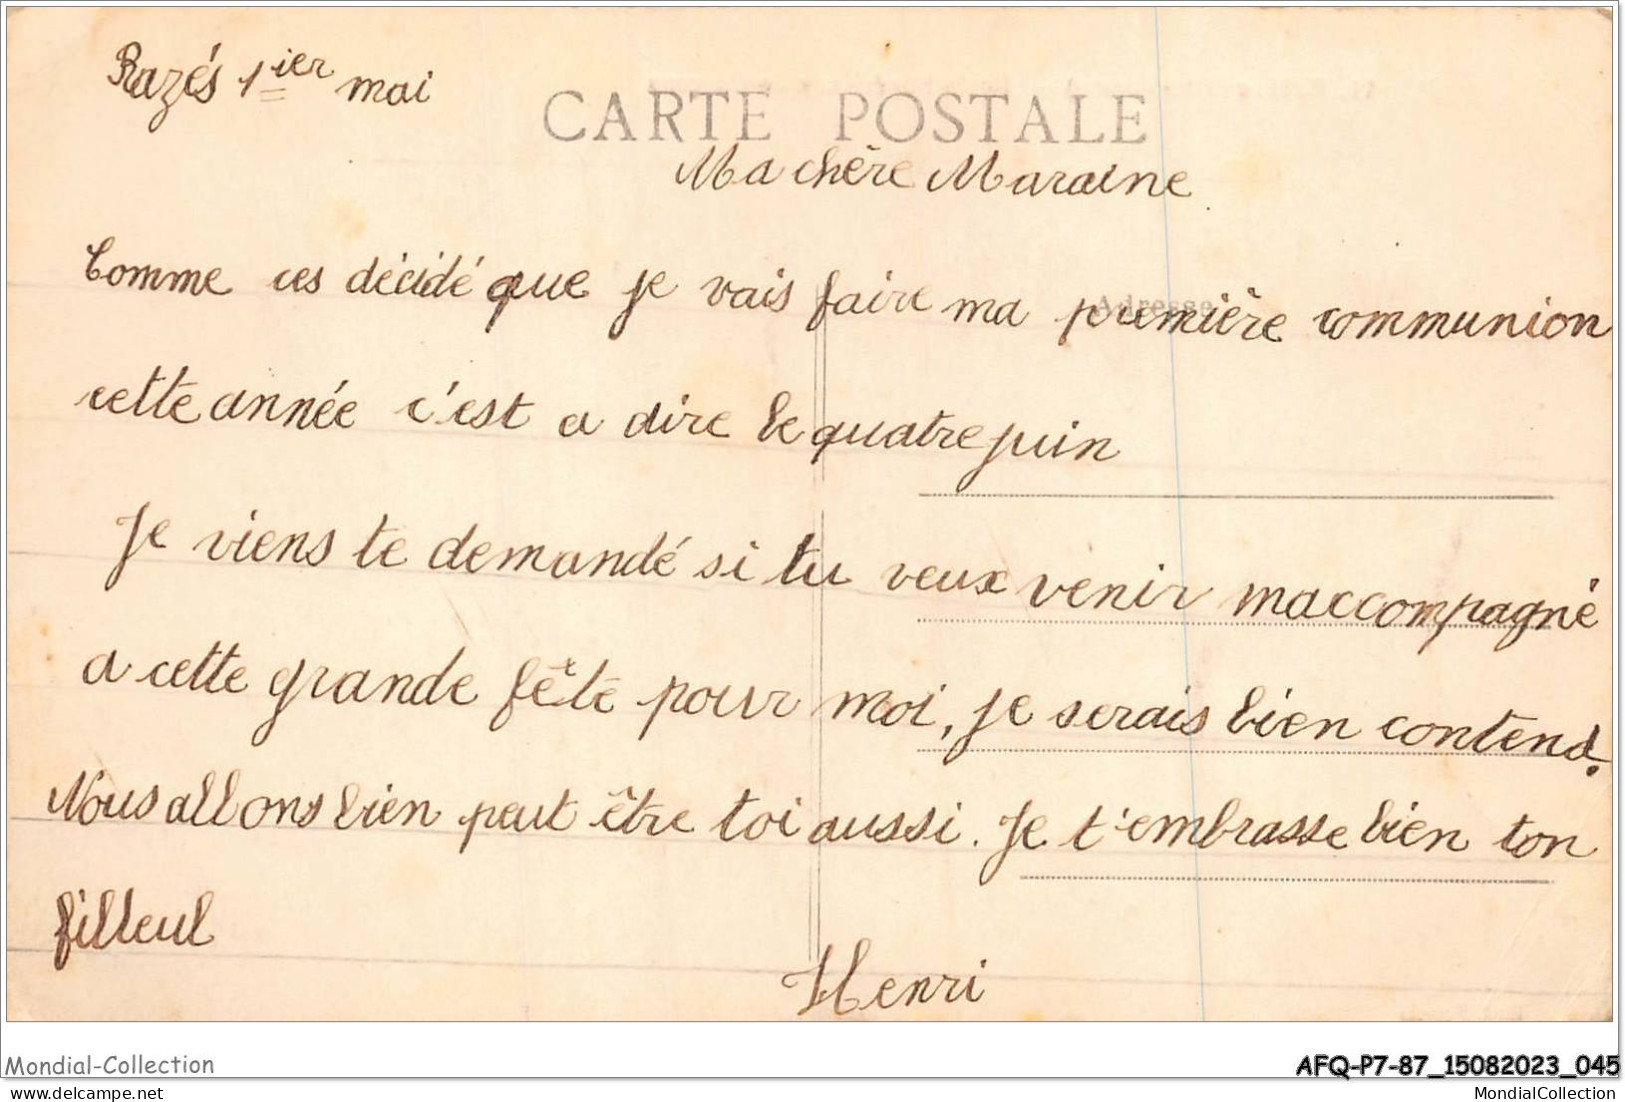 Razés 1ier mai
CARTE POSTALE
Ma chère Maraine
Adresse
Comme ces décidé que je vais faire ma première communion
cette année c'est a dire le quatre juin
Je viens te demandé si tu veux venir maccompagné
a cette grande fête pour moi, je serais bien contend.
Nous allons bien peut être toi aussi. Je t'embrasse bien ton
filleul
Henri
Mondial-Collection
AFQ-P7-87_15082023_045
Mondial-Collection
MondialCollection